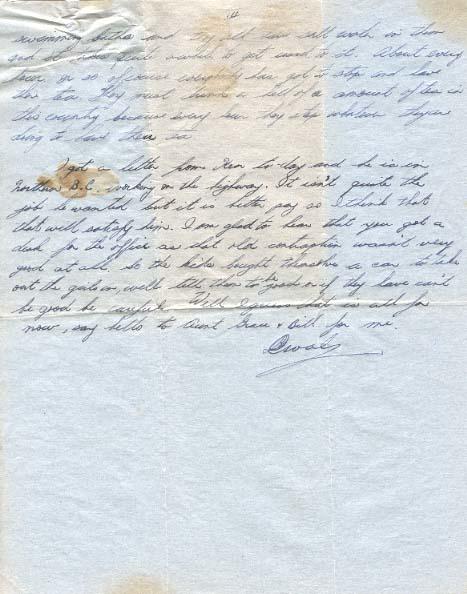 swimming and they all work in them
and it takes quite awhile to get used to it. About every
hour or so of course everybody has got to stop and have
their tea. They must have a hell of a amount of tea in
this country because every hour they stop whatever they're
doing to have their tea.
I got a letter from Ken to-day and he is in
Northern B.C. working on the highway. It isn't quite the
job he wanted but it is better pay so I think that
that will satisfy him. I am glad to hear that you got a
desk for the office as that old contraption wasn't very
good at all. So the kids bought themselves a car to take
out the girls in, well tell them to be good or if they can't
be good be careful. Well I guess that is all for
now, say hello to Aunt Grace & Bill for me.